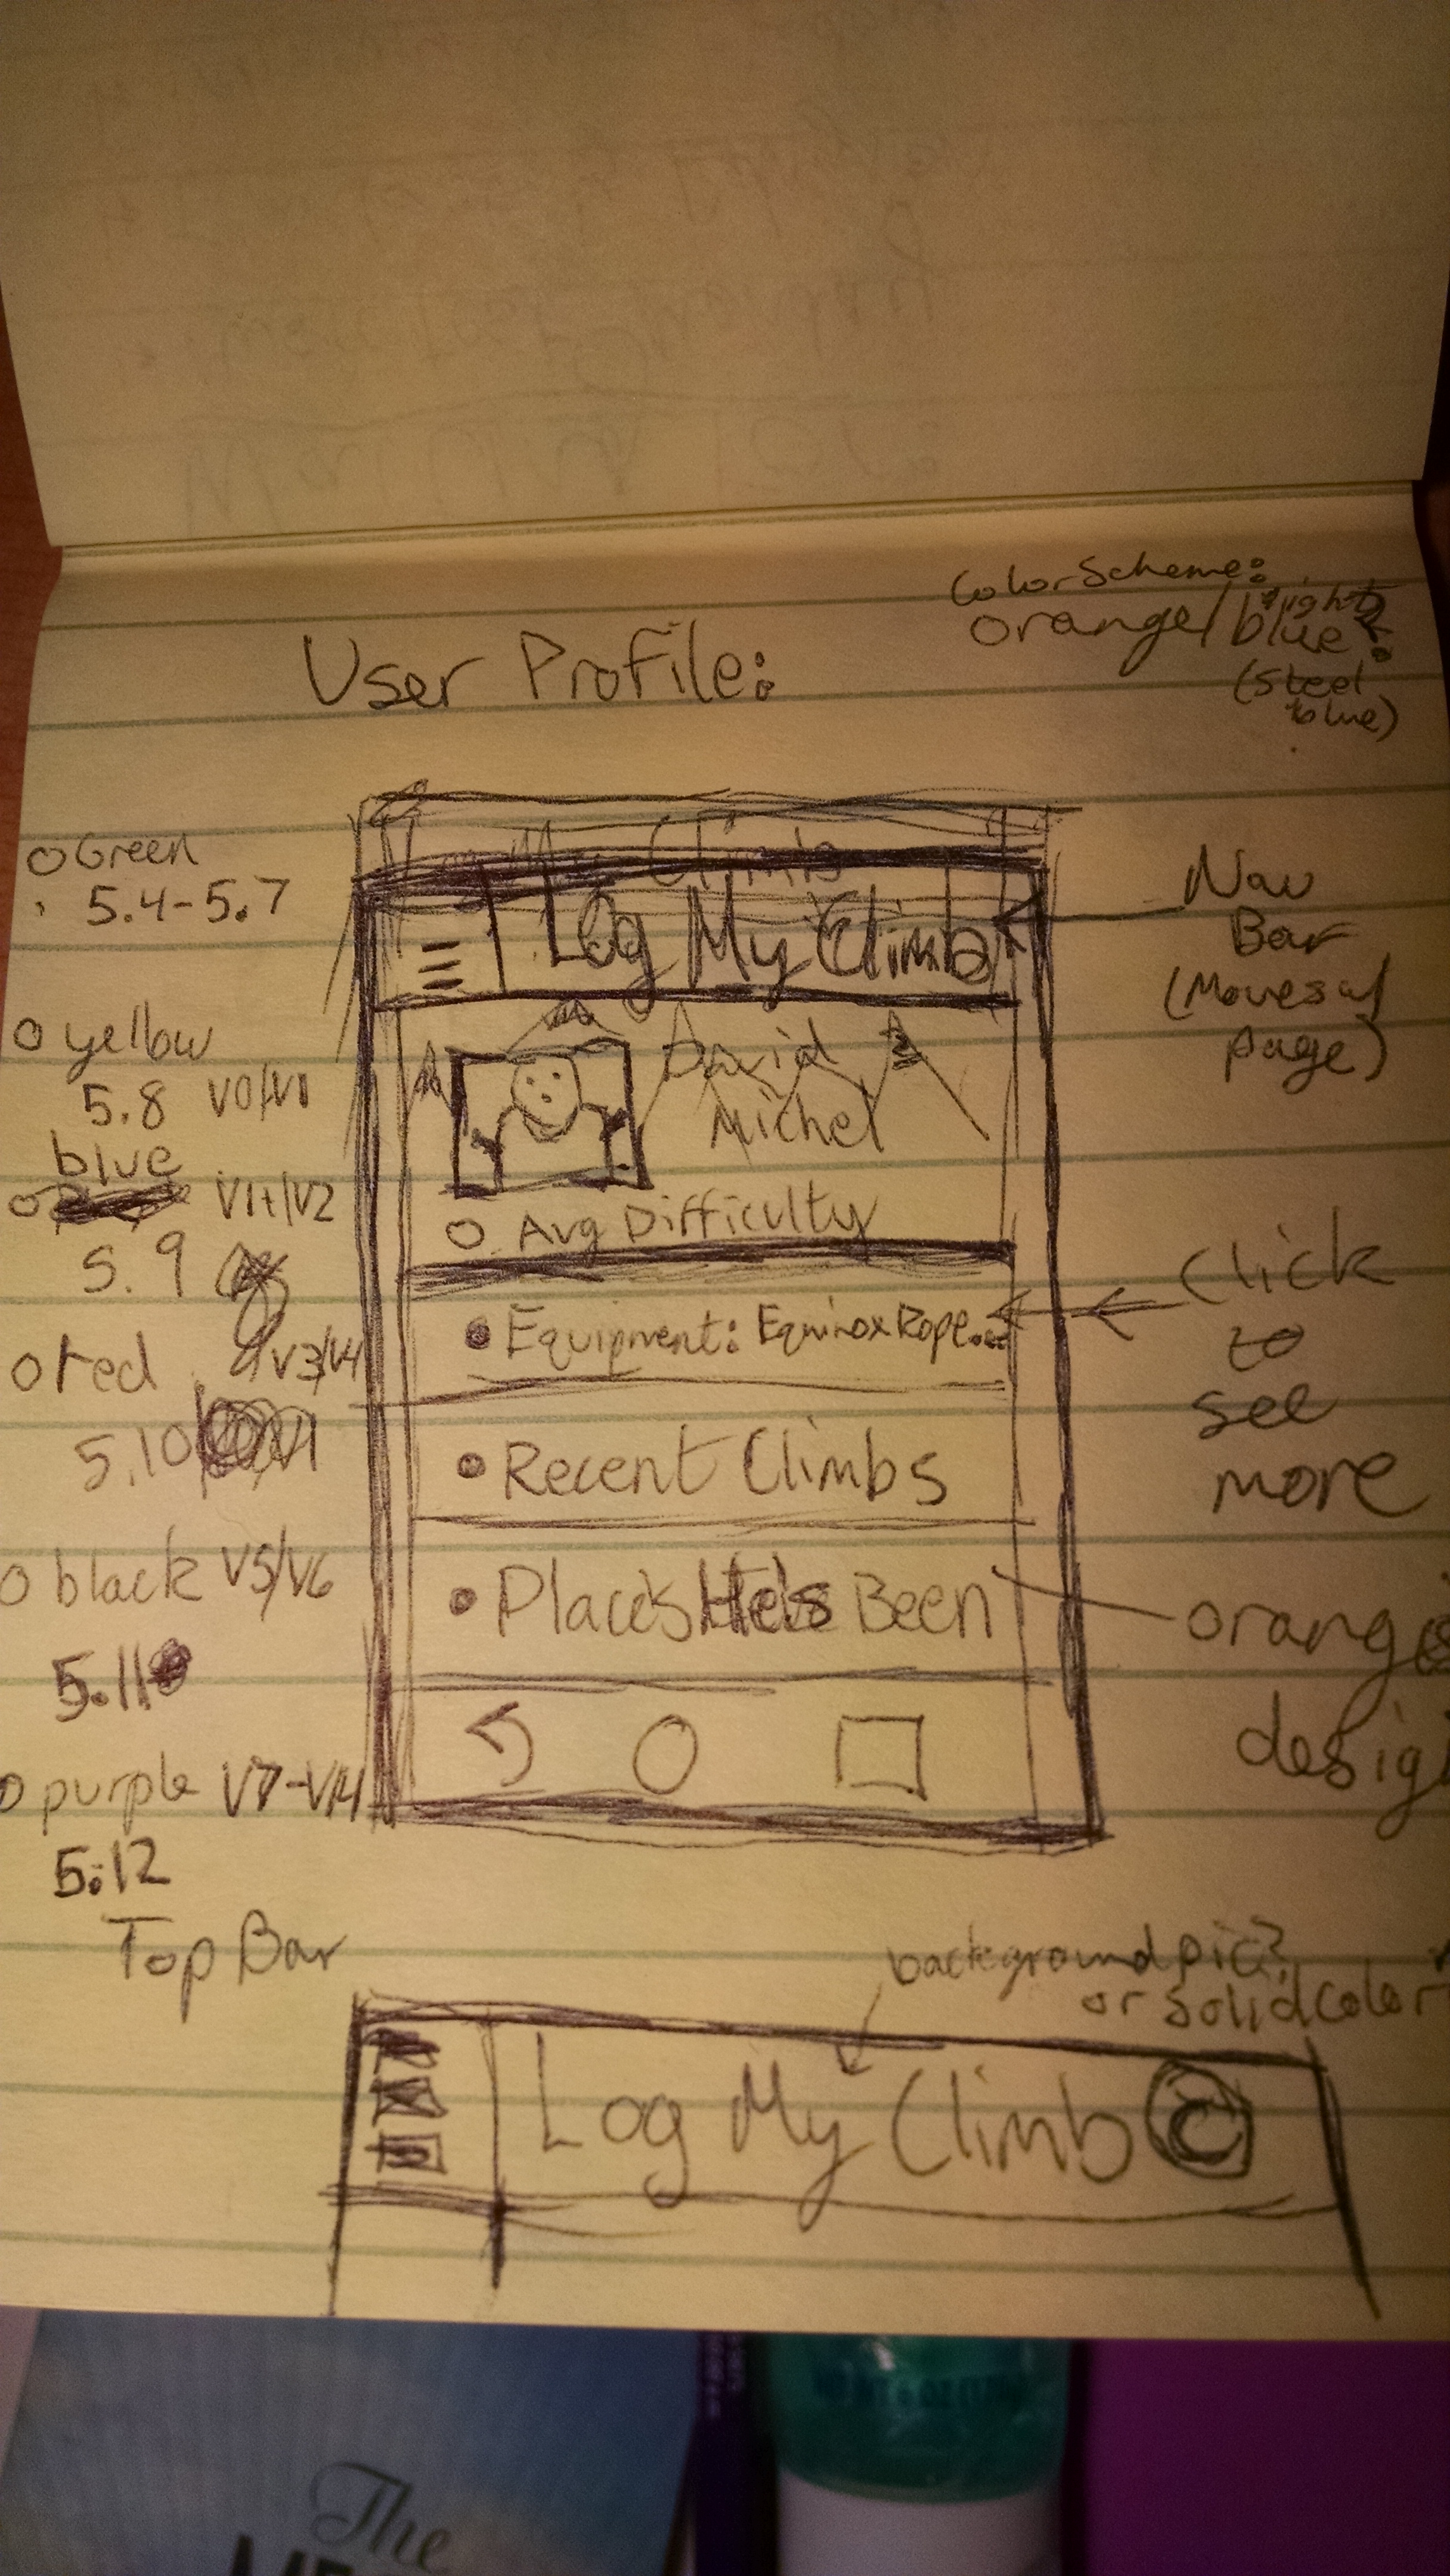 Color Scheme:
orange/light blue?
(steel
blue)
User Profile:
Green
5.4-5.7
yellow
5.8 V0/V1
blue
V1+/V2
5.9
red V3/V4
5.10
black V5/V6
5.11
purple V7-V14
5.12
Log My Climb
David
Michel
Avg Difficulty
Equipment: Equinox Rope...
Recent Climbs
Places He's Been
Nav
Bar
(Moves w/
page)
Click
to
see
more
orange
desig
Top Bar
background pic?
or solid color
Log My Climb
The